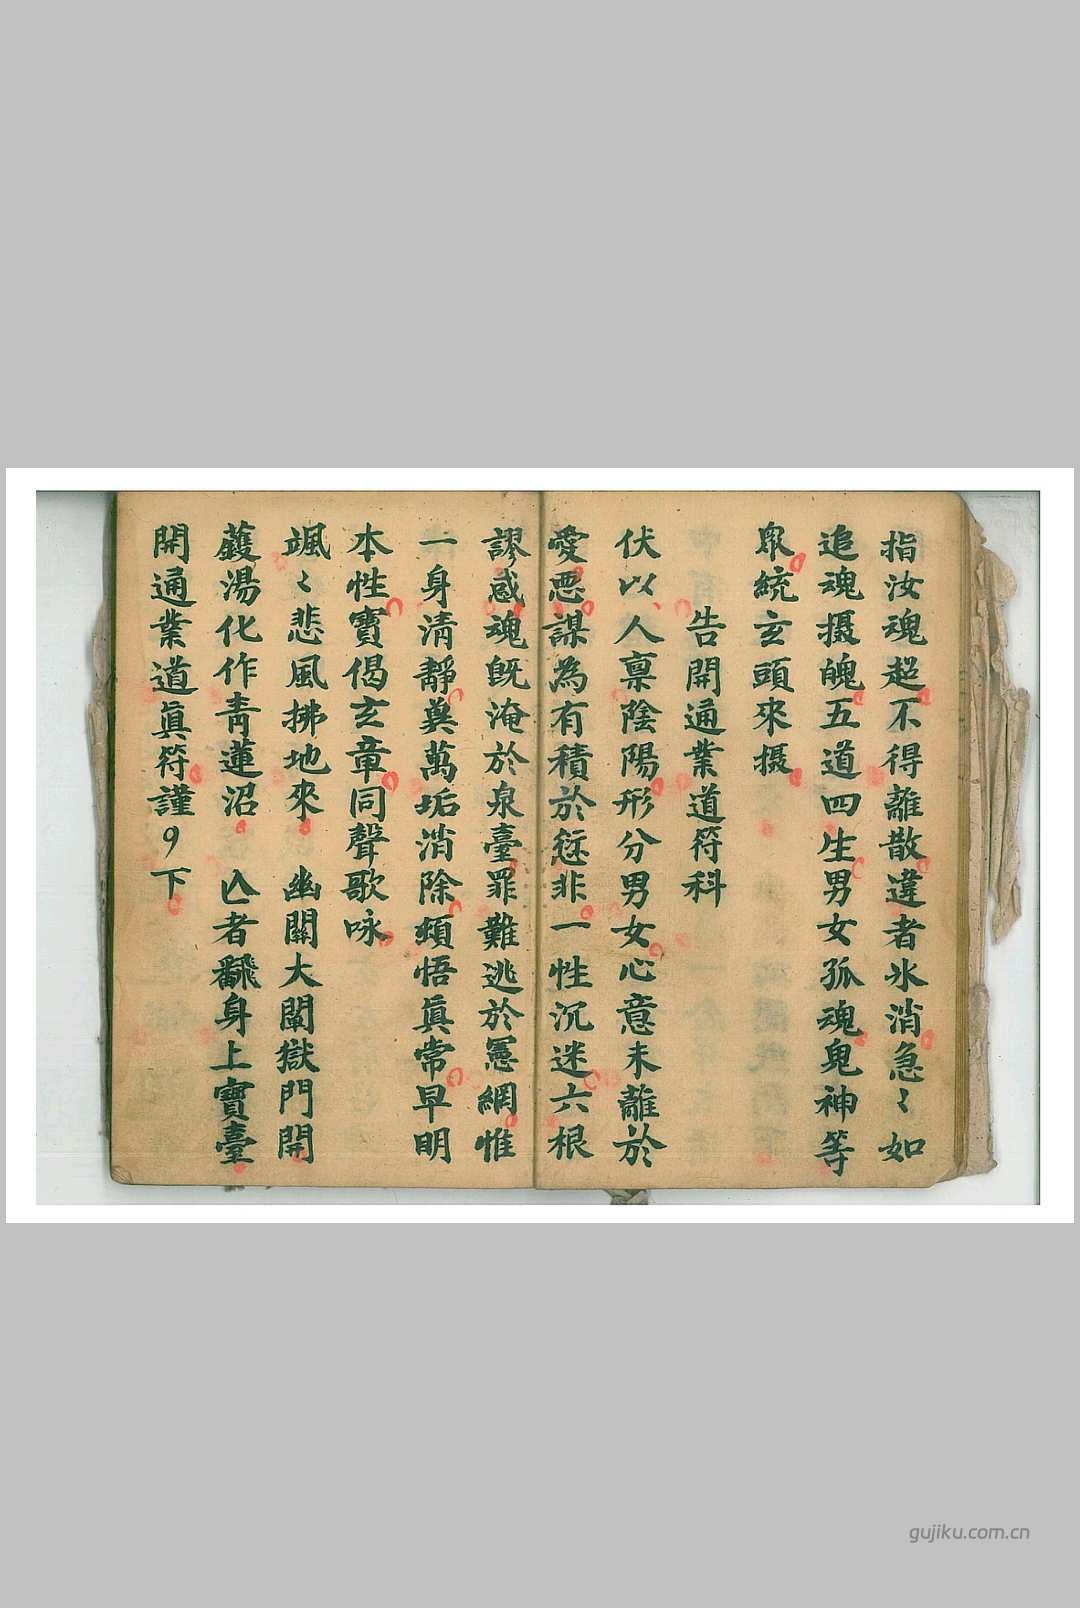 指汝魂超不得離散違者氷消急〻如
追魂摄魄五道四生男女孤魂鬼神等
眾統玄頭來摄
告開通業道符科
伏以人禀陰陽形分男女心意未離於
愛恶謀為有積於愆非一性沉迷六根
謬惑魂旣淹於泉臺罪難逃於憲網惟
一身清靜奠萬垢消除頓悟眞常早明
本性寶偈玄章同聲歌咏
颯〻悲風拂地來 幽關大闡獄門開
鑊湯化作青蓮沼 亾者飜身上寶臺
開通業道眞符謹り下
gujiku.com.cn